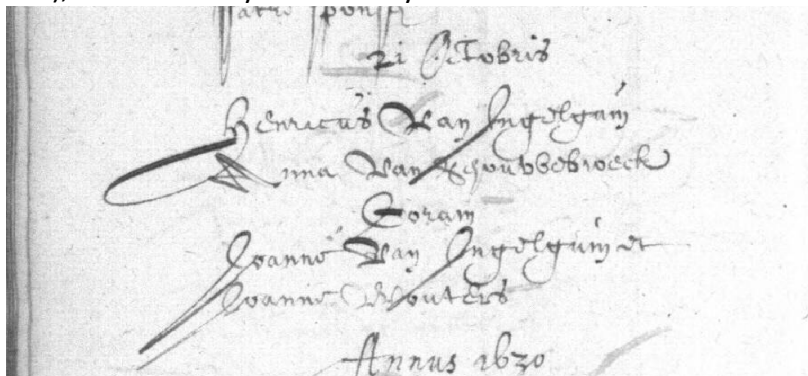 patre sponsi
21 Octobris
Henricus Van Ingelgum
Anna Van Schoubbebroeck
Coram
Joanne Van Ingelgum et
Joanne Wouters
Annus 1630